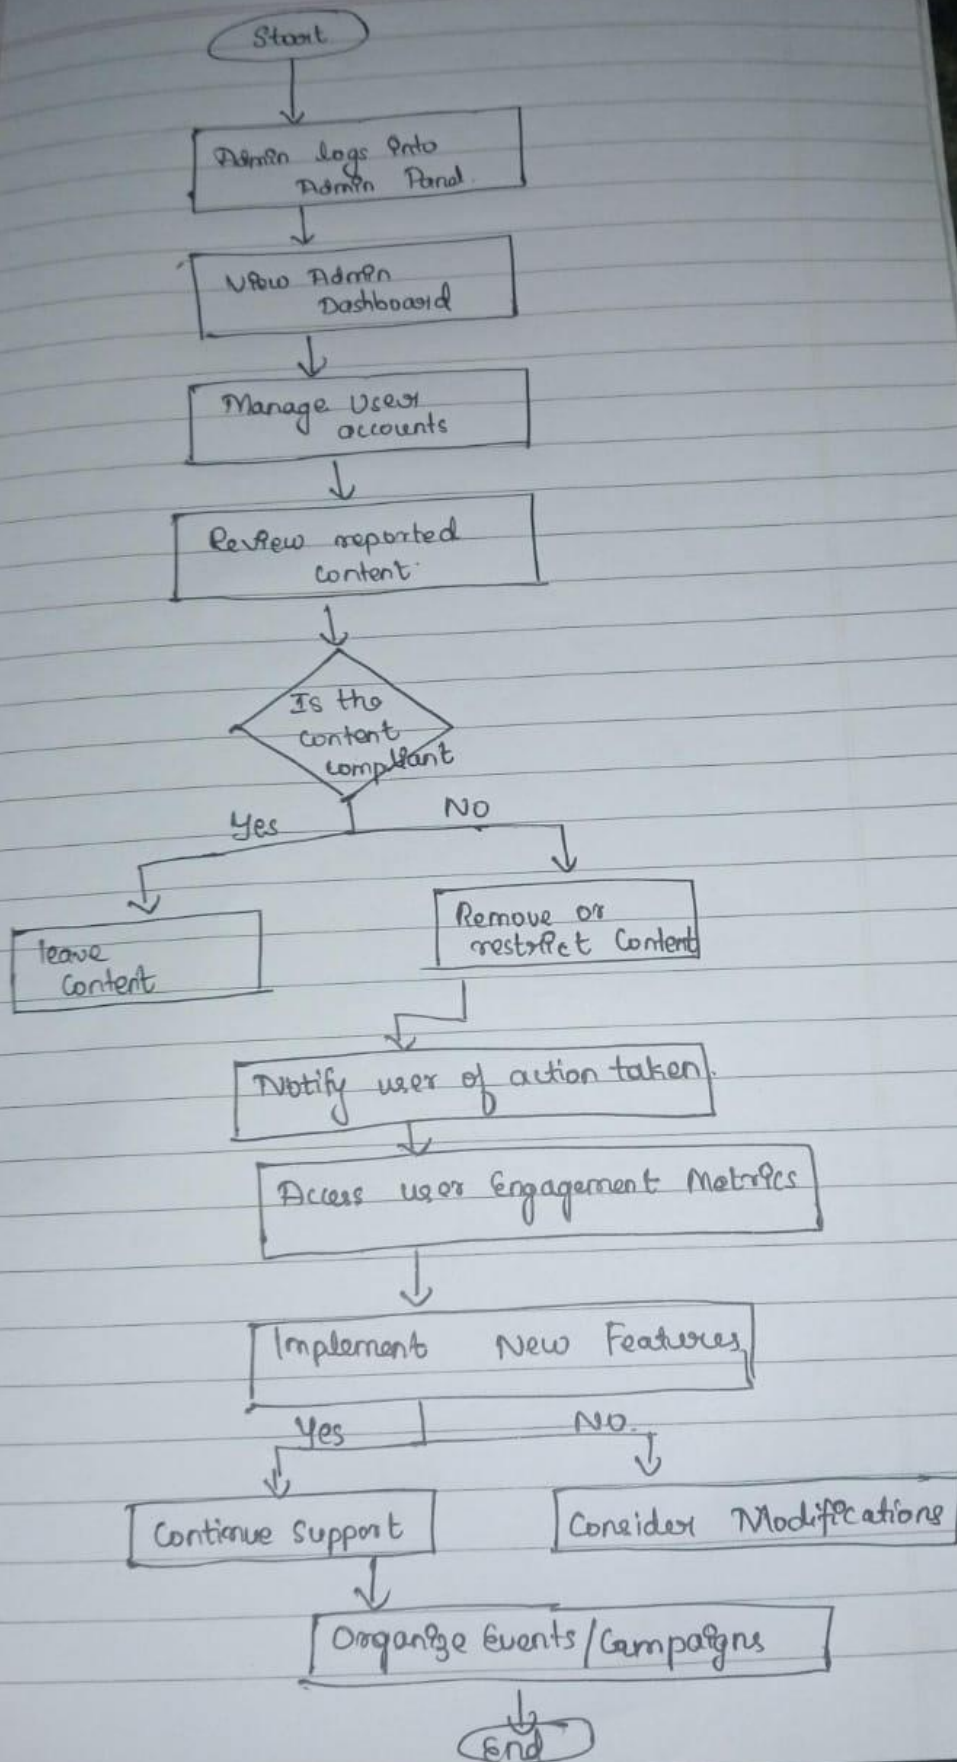 Start
Admin logs into
Admin Panel.
View Admin
Dashboard
Manage User
accounts
Review reported
content.
Is the
content
compliant
Yes
NO
leave
content
Remove or
restrict Content
Notify user of action taken.
Access user Engagement Metrics
Implement New Features
Yes
NO.
Continue Support
Consider Modifications
Organize Events/Campaigns
End